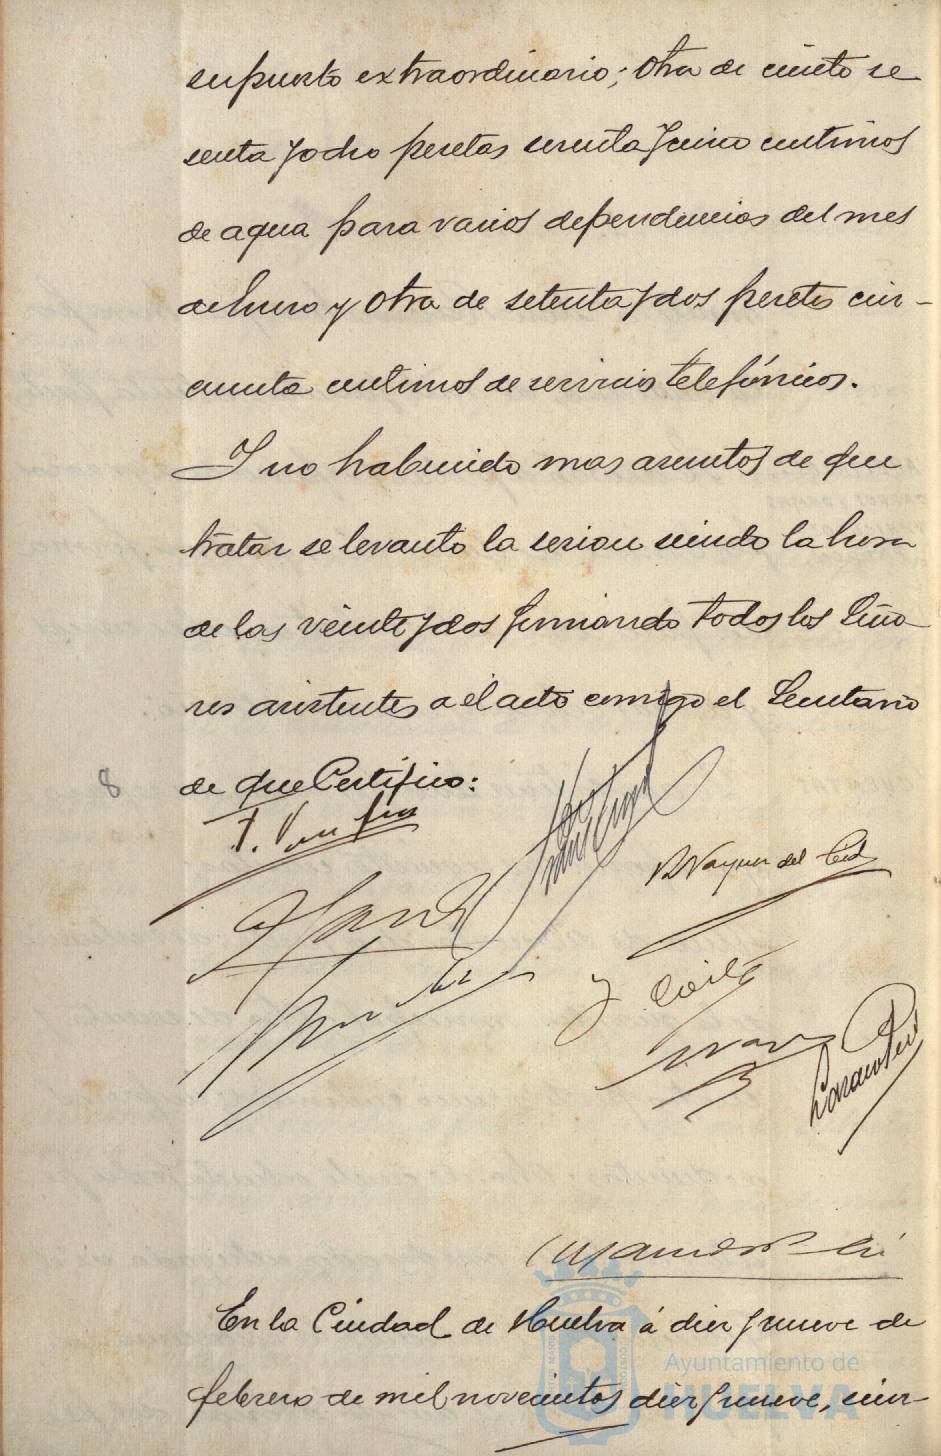 supuesto extraordinario; otra de ciento se
senta y ocho pesetas sesenta y cinco centimos
de agua para varios dependencias del mes
de Enero y otra de setenta y dos pesetas cin-
cuenta centimos de servicios telefónicos.
Y no habiendo mas asuntos de que
tratar se levanto la sesion siendo la hora
de las veinte y dos firmando todos los Seño
res asistentes a el acto comigo el Secretario
de que Certifico:
8
B Vazquez del Cid
y Coito
En la Ciudad de Huelva á diez y nueve de
febrero de mil novecientos diez y nueve, sien-
Ayuntamiento de
HUELVA